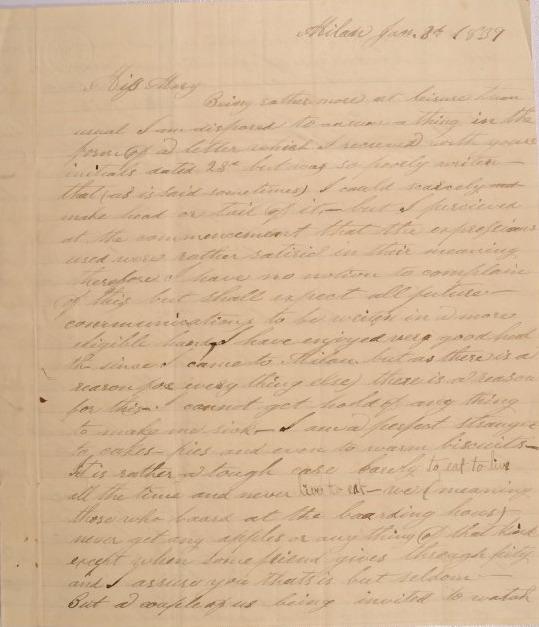 Milan Jan. 8th 1839
Miss Mary
Being rather more at leisure than
usual I am disposed to answer a thing in the
form of a letter which I received with your
initials dated 23d but was so poorly writen
that (as is said sometimes) I could scarcely
make head or tail of it – but I percieved
at the commencement that the expressions
used were rather satirical in their meaning
therefore I have no notion to complain
of this but shall expect all future
communications to be writen in a more
eligible hand I have enjoyed very good heal
th since I came to Milan but as there is a
reason for every thing else) there is a reason
for this – I cannot get hold of any thing
to make me sick – I am a perfect strange
to cakes – pies and even to warm biscuits –
It is rather a tough case barely to eat to live
all the time and never live to eat – we (meaning
those who board at the boarding house)
never get any apples or any thing of that kind
except when some friend gives through pity
and I assure you thats is but seldom –
But a couple of us being invited to watch